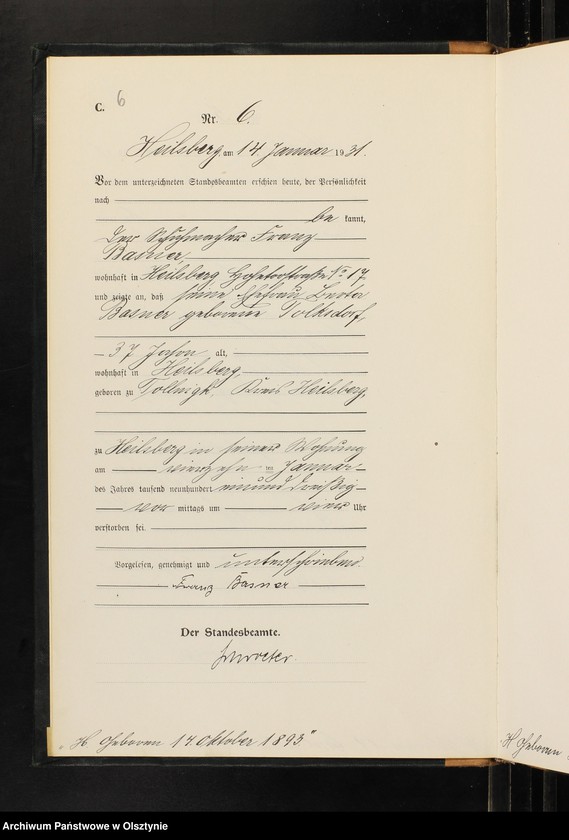 C. 6
Nr. 6.
Heilsberg am 14 Januar 1931.
Vor dem unterzeichneten Standesbeamten erschien heute, der Persönlichkeit
nach
be kannt,
der Schuhmacher Franz
Basner
wohnhaft in Heilsberg Hohetorstraße No 17
und zeigte an, daß seine Ehefrau
Basner geborene Tolksdorf,
37 Jahre alt,
wohnhaft in Heilsberg
geboren zu Tollnigk, Kreis Heilsberg,
zu Heilsberg in seiner Wohnung
am vierzehn ten Januar
des Jahres tausend neunhundert einunddreißig
vor mittags um vier Uhr
verstorben sei.
Vorgelesen, genehmigt und unterschrieben
Franz Basner
Der Standesbeamte.
„H. Geboren 14. Oktober 1893"
H Geboren
Archiwum Państwowe w Olsztynie